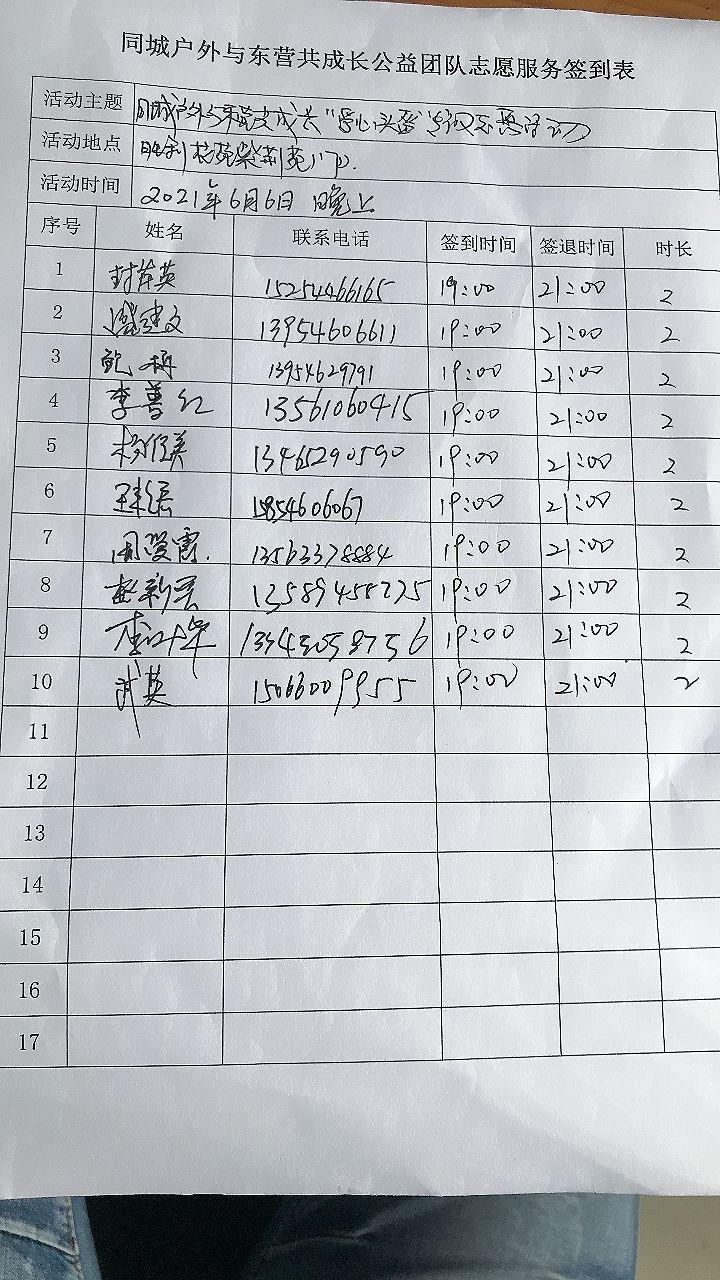 同城户外与东营共成长公益团队志愿服务签到表
活动主题 同城户外与东营共成长"爱心头盔"
活动地点 胜利
活动时间 2021年6月6日 晚上
序号 姓名 联系电话 签到时间 签退时间 时长
1 封英 15254466165 19:00 21:00 2
2 盛建文 13954606611 19:00 21:00 2
3 13954629791 19:00 21:00 2
4 李曹红 13561060415 19:00 21:00 2
5 杨美 13465290590 19:00 21:00 2
6 19:00 21:00 2
7 周 13563378884 19:00 21:00 2
8 赵新 13589458775 19:00 21:00 2
9 19:00 21:00 2
10 武英 15066009955 19:00 21:00 2
11
12
13
14
15
16
17